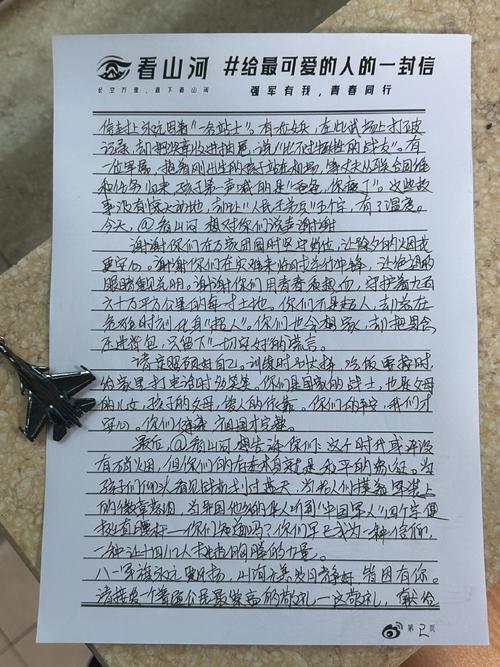 看山河 #给最可爱的人的一封信
长空万里，直下看山河 强军有我，青春同行
信封上永远困着"一名战士"。有位女兵，在比武场上打破
记录，却把奖章收进抽屉，说
一位军属，抱着刚出生的孩子站在机场，等丈夫从联合国维
和任务归来，孩子第一声喊的是"爸爸，你瘦了"。这些故
事没有惊天动地，却让"人民子弟兵"五个字，有了温度。
今天，@看山河 想对你们说声谢谢
谢谢你们在万家团圆时坚守岗位，让除夕的烟花
更安心。谢谢你们在灾难来临时举冲锋，让绝望的
眼睛重见光明。谢谢你们用青春和热血，守护着九百
六十万平方公里的每一寸土地。你们不是超人，却总在
危难时刻化身"超人"。你们也会想家，却把思念
压进背包，只留下"一切安好"的谎言。
请一定照顾好自己。训练时别太拼，冷饭要按时
给家里打电话时多笑笑。你们是国家的战士，也是父母
的儿女，孩子的父母，爱人的依靠。你们的平安，我们才
安心。你们健康，祖国才安康。
最后，@看山河 想告诉你们：这个时代或许没
有万丈烟，但你们的存在本身就是和平的象征。当
孩子们仰头看见战机划过蓝天，当老人们摸着军装上
的徽章落泪，当异国他乡的华人听到"中国军人"四个字便
挺直腰杆——你们知道吗？你们早已成为一种信仰，
一种让十四亿人
八一军旗永远飘扬，山河无恙岁月静好 皆因有你。
请接受一个普通公民最崇高的敬礼—这敬礼，
第2页